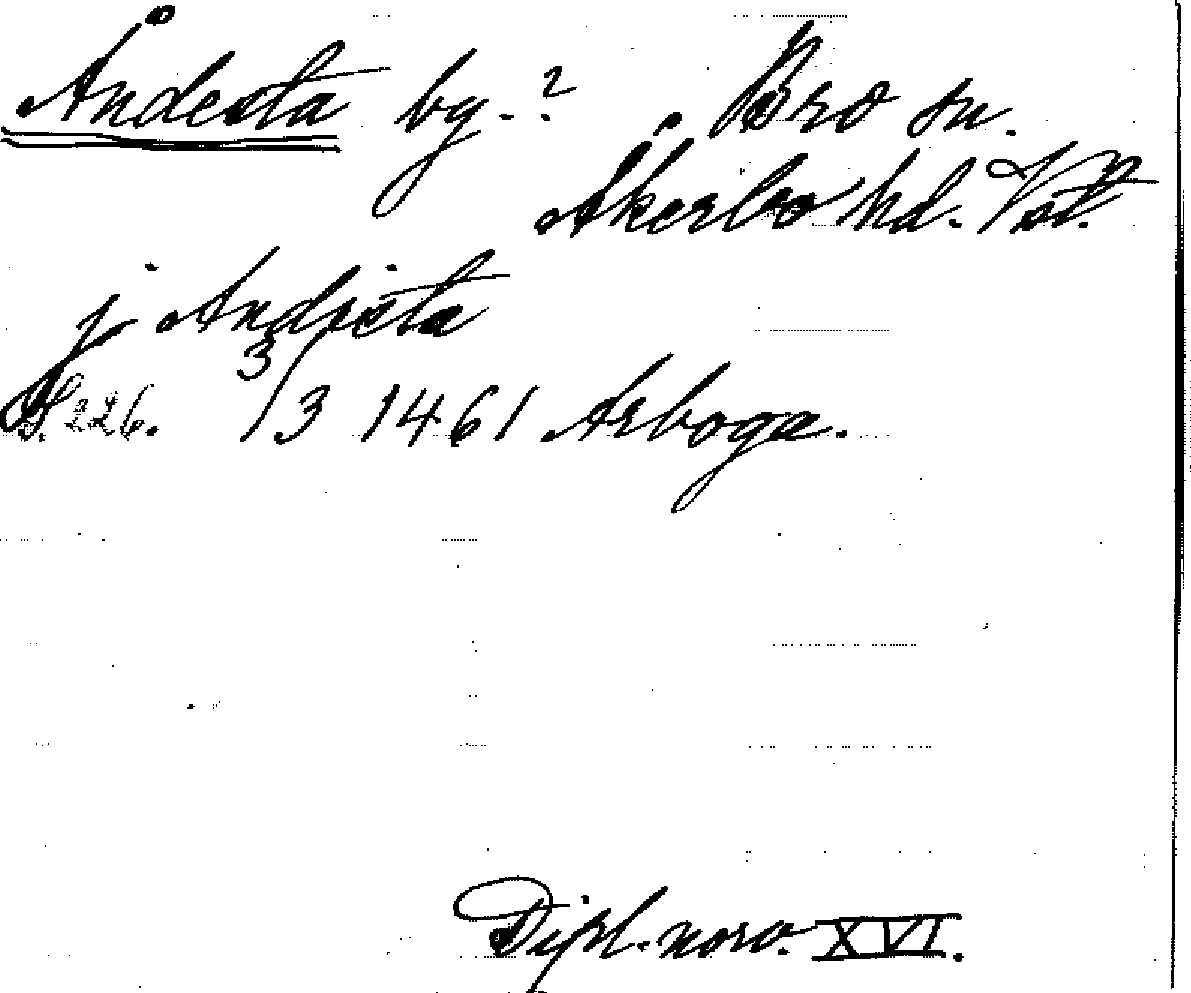 Åndesta by.? Bro sn.
Åkerbo hd. Vstm.
j Andista
S. 226. 3/3 1461 Arboga.
Dipl. norv. XVI.